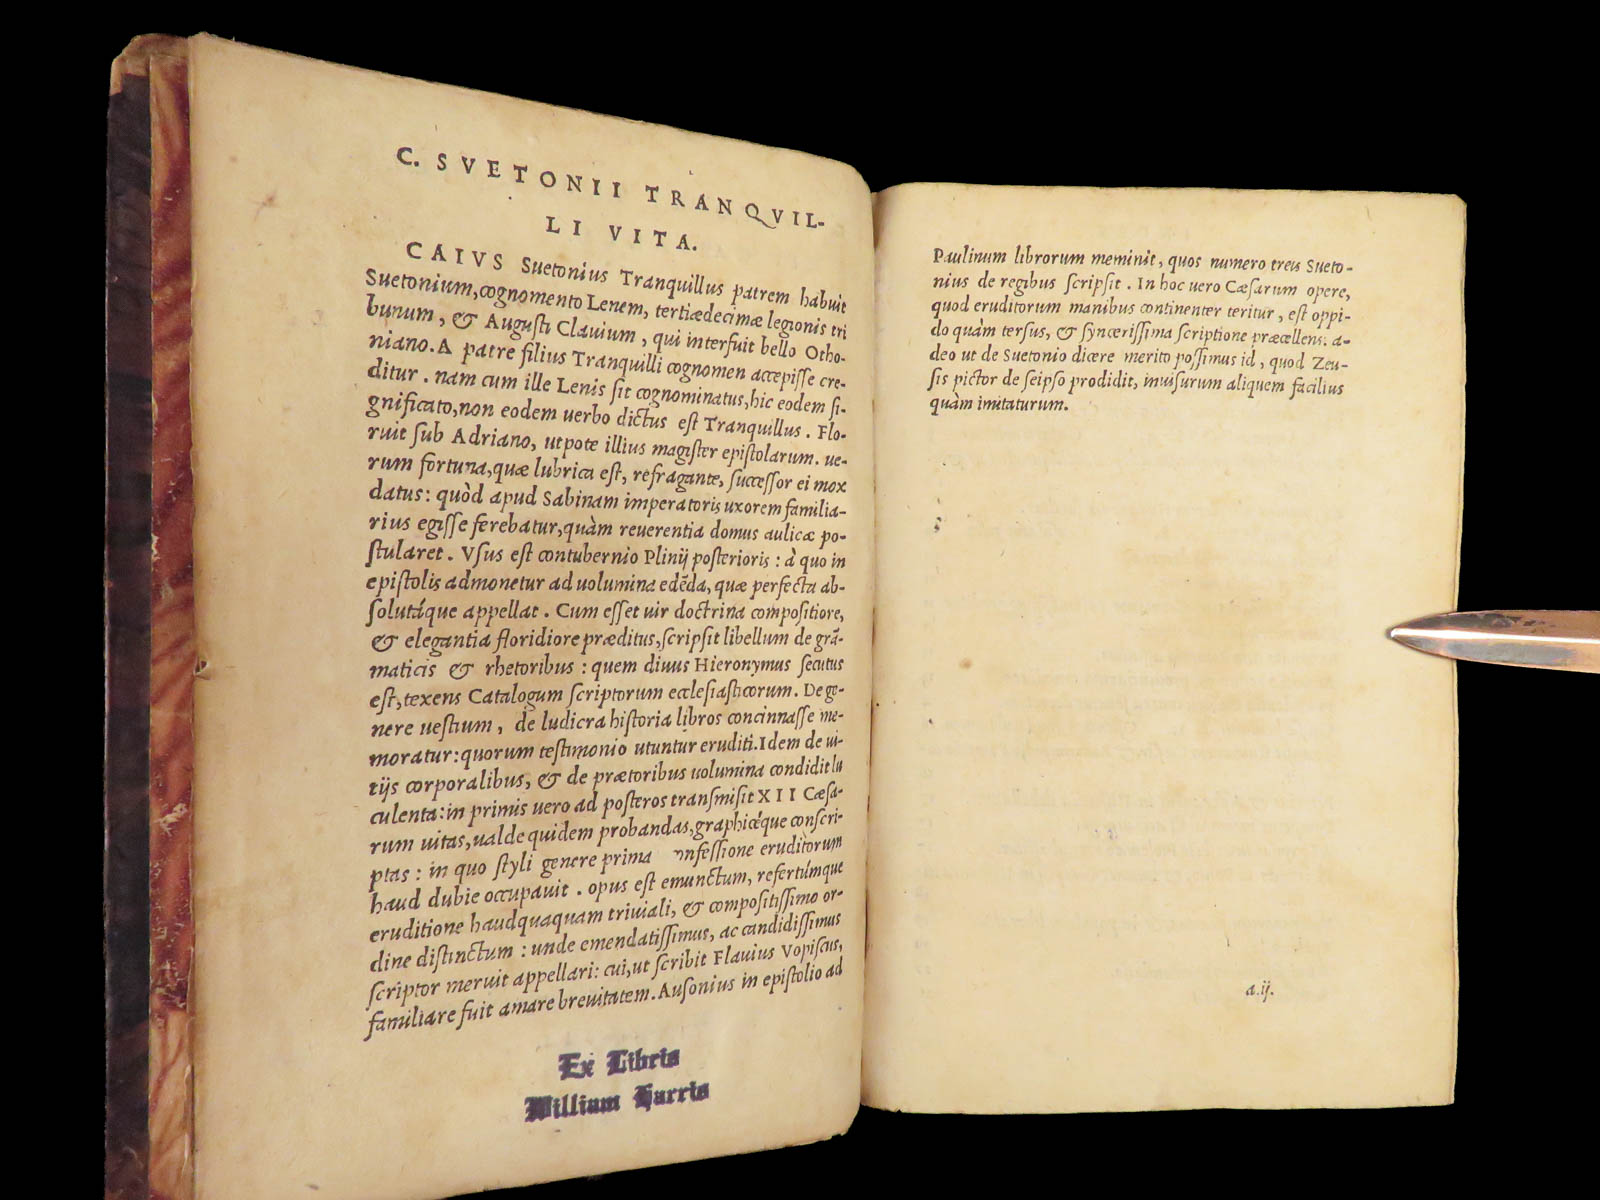 C. SVETONII TRANQVIL-
LI VITA.
CAIVS Suetonius Tranquillus patrem habuit
Suetonium, cognomento Lenem, tertiædecimæ legionis tri
bunum, & Augusti Clauium, qui interfuit bello Otho-
niano. A patre filius Tranquilli cognomen accepisse cre-
ditur. nam cum ille Lenis sit cognominatus, hic eodem si-
gnificato, non eodem uerbo dictus est Tranquillus. Flo-
ruit sub Adriano, utpote illius magister epistolarum. ue-
rum fortuna, quæ lubrica est, refragante, successor ei mox
datus: quòd apud Sabinam imperatoris uxorem familia-
rius egisse ferebatur, quàm reuerentia domus aulicæ po-
stularet. Vsus est contubernio Plinij posterioris: à quo in
epistolis admonetur ad uolumina edẽda, quæ perfecta ab-
solutáque appellat. Cum esset uir doctrina compositiore,
& elegantia floridiore præditus, scripsit libellum de grã-
maticis & rhetoribus: quem diuus Hieronymus secutus
est, texens Catalogum scriptorum ecclesiasticorum. De ge-
nere uestium, de ludicra historia libros concinnasse me-
moratur: quorum testimonio utuntur eruditi. Idem de ui-
tijs corporalibus, & de prætoribus uolumina condidit lu
culenta: in primis uero ad posteros transmisit XII Cæsa-
rum uitas, ualde quidem probandas, graphicéque conscri-
ptas: in quo styli genere prima onfessione eruditorum
haud dubie occupauit. opus est emunctum, refertúmque
eruditione haudquaquam triuiali, & compositissimo or-
dine distinctum: unde emendatissimus, ac candidissimus
scriptor meruit appellari: cui, ut scribit Flauius Vopiscus,
familiare fuit amare breuitatem. Ausonius in epistolio ad
Ex Libris
William Harris
Paulinum librorum meminit, quos numero treis Sueto-
nius de regibus scripsit. In hoc uero Cæsarum opere,
quod eruditorum manibus continenter teritur, est oppi-
do quàm tersus, & syncerissima scriptione præcellens: a-
deo ut de Suetonio dicere merito possimus id, quod Zeu-
sis pictor de seipso prodidit, inuisurum aliquem facilius
quàm imitaturum.
a.ij.